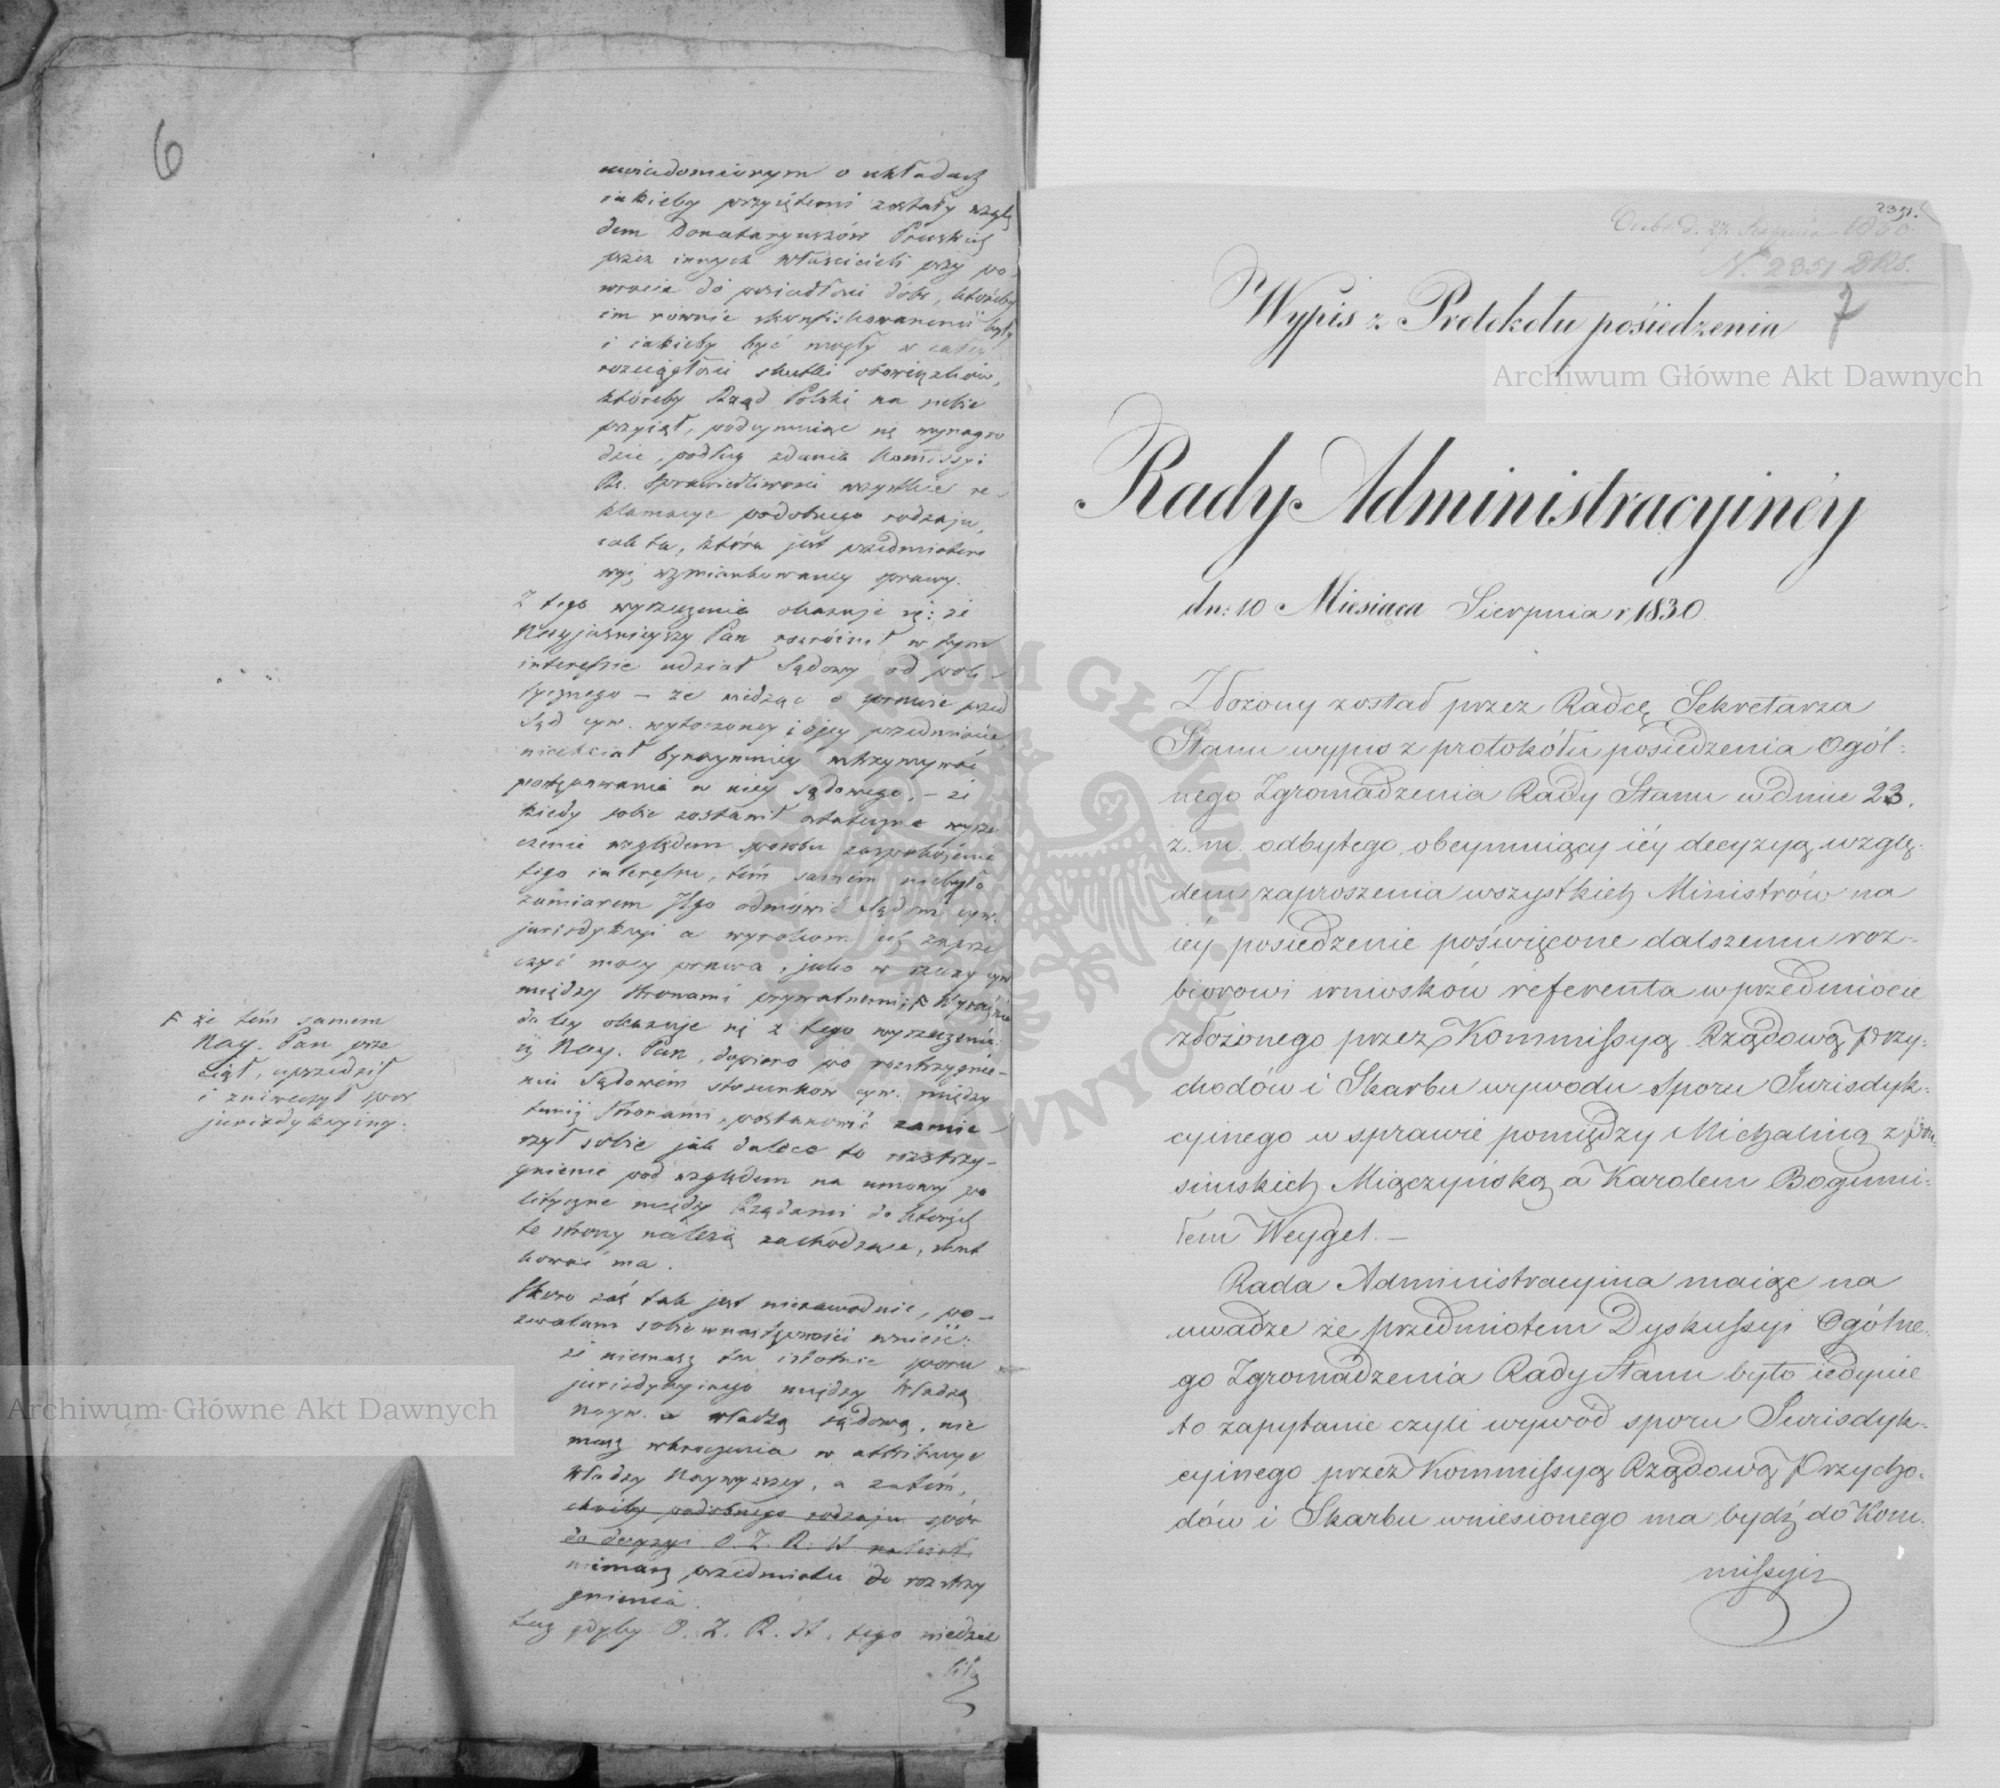 6
uwiadomionym o układach
iakieby przyiętemi zostały wzglę
dem Donataryuszów Pruskich
przez innych właścicieli przy po-
wrocie do posiadłości dóbr, któreby
im równie skonfiskowanemi były
i iakieby być mogły w całey
rozciągłości skutki obowiązków,
któreby Rząd Polski na siebie
przyiął, podeymuiąc się wynagro
dzić, podług zdania Kommissyi
Rz. Sprawiedliwości wszystkie re-
klamacye podobnego rodzaju,
iak ta, która jest przedmiotem
wyż wzmiankowaney sprawy.
Z tego wyrzeczenia okazuje się: że
Nayjaśnieyszy Pan rozróżnił w tym
interessie udział Sądowy od poli-
tycznego – że wiedząc o sprawie przed
Sąd cyw. wytoczoney i o jey przedmiocie,
niechciał bynaymniey wtrzymywać
postępowania w niey Sądowego, – że
kiedy sobie zostawił ostateczne wyrze
czenie względem sposobu zaspokojenia
tego interessu, tém samém niebyło
zamiarem Jego odmówić Sądom cyw.
jurisdykcyi a wyrokom ich zaprze
czyć mocy prawa, jako w rzeczy cyw
między stronami prywatnemi; F Wyraźnie
daley okazuje się z tego wyrzeczenia
iż Nay. Pan, dopiero po rozstrzygnie-
niu Sądowém stosunków cyw. między
temiż stronami, postanowić zamie-
rzył sobie jak dalece to rozstrzy-
gnienie pod względem na umowy po
lityczne między Rządami do których
te strony należą zachodzące, skut
kować ma.
F że tém samem
Nay. Pan prze
ciął, uprzedził
i zniweczył spór
jurisdykcyiny.
Skoro zaś tak jest niezawodnie, po-
zwalam sobie w następności wnieść:
że niemasz tu istotnie sporu
jurisdykcyinego między Władzą
Nayw. a władzą sądową, nie
masz wkroczenia w attribucye
Władzy Naywyższey, a zatém,
choćby podobnego rodzaju spór
do decyzyi O. Z. R. St. należał
niemasz przedmiotu do rozstrzy
gnienia.
Lecz gdyby O. Z. R. St. tego niedzie
liło
2351.
N. 2351 DRS.
7
Wypis z Protokołu posiedzenia
Rady Administracyinéy
dn: 10 Miesiąca Sierpnia r. 1830
Złożony został przez Radcę Sekretarza
Stanu wypis z protokółu posiedzenia Ogól-
nego Zgromadzenia Rady Stanu w dniu 23.
z. m. odbytego, obeymuiący iéy decyzyą wzglę-
dem zaproszenia wszystkich Ministrów na
iéy posiedzenie poświęcone dalszemu roz-
biorowi wniosków referenta w przedmiocie
złożonego przez Kommissyą Rządową Przy-
chodów i Skarbu wywodu sporu Jurisdyk-
cyinego w sprawie pomiędzy Michaliną z Pru-
simskich Miączyńską a Karolem Bogumi-
łem Weygel. –
Rada Administracyina maiąc na
uwadze że przedmiotem Dyskussyi Ogólne-
go Zgromadzenia Rady Stanu było iedynie
to zapytanie czyli wywód sporu Jurisdyk-
cyinego przez Kommissyą Rządową Przycho-
dów i Skarbu wniesionego ma bydź do Kom-
missyi
Archiwum Główne Akt Dawnych
Archiwum Główne Akt Dawnych
ARCHIWUM GŁÓWNE AKT DAWNYCH